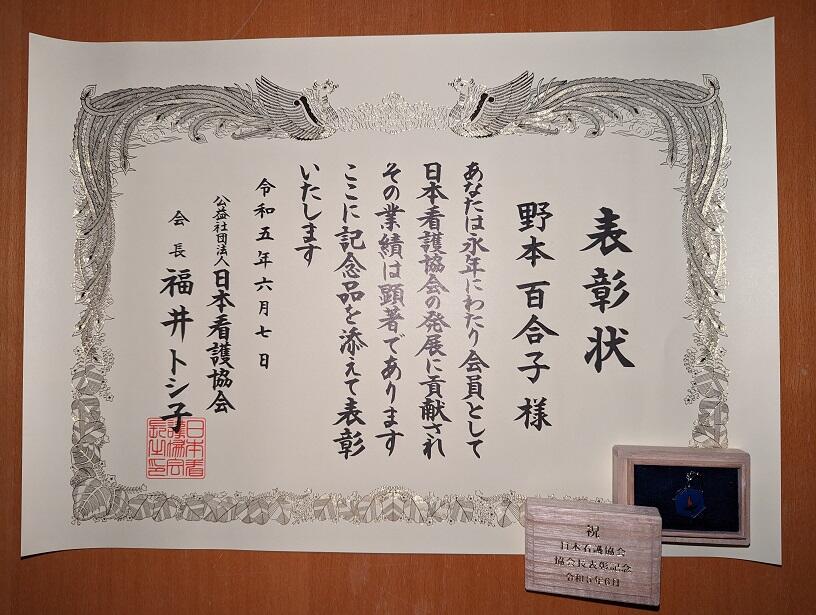 表彰状
野本 百合子 様
あなたは永年にわたり会員として
日本看護協会の発展に貢献され
その業績は顕著であります
ここに記念品を添えて表彰
いたします
令和五年六月七日
公益社団法人 日本看護協会
会長 福井トシ子
日本看
護協会
長之印
祝
日本看護協会
協会長表彰記念
令和5年6月